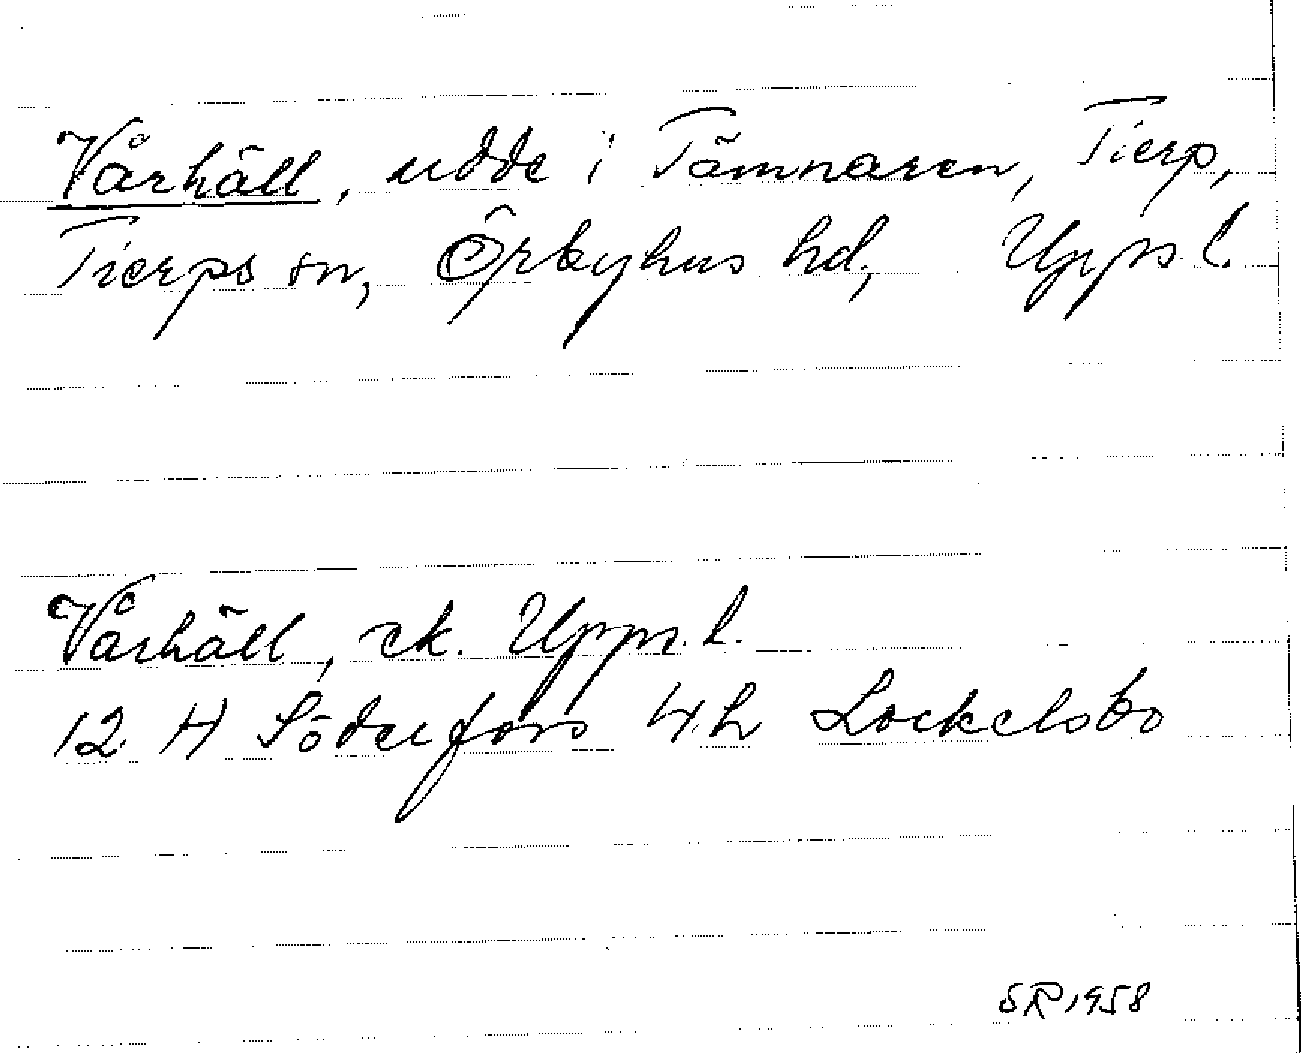 Vårhäll, udde i Tämnaren, Tierp,
Tierps sn, Örbyhus hd, Upps.l.
Vårhäll, ek. Upps.l.
12 H Söderfors 4h Lockelsbo
SR 1958